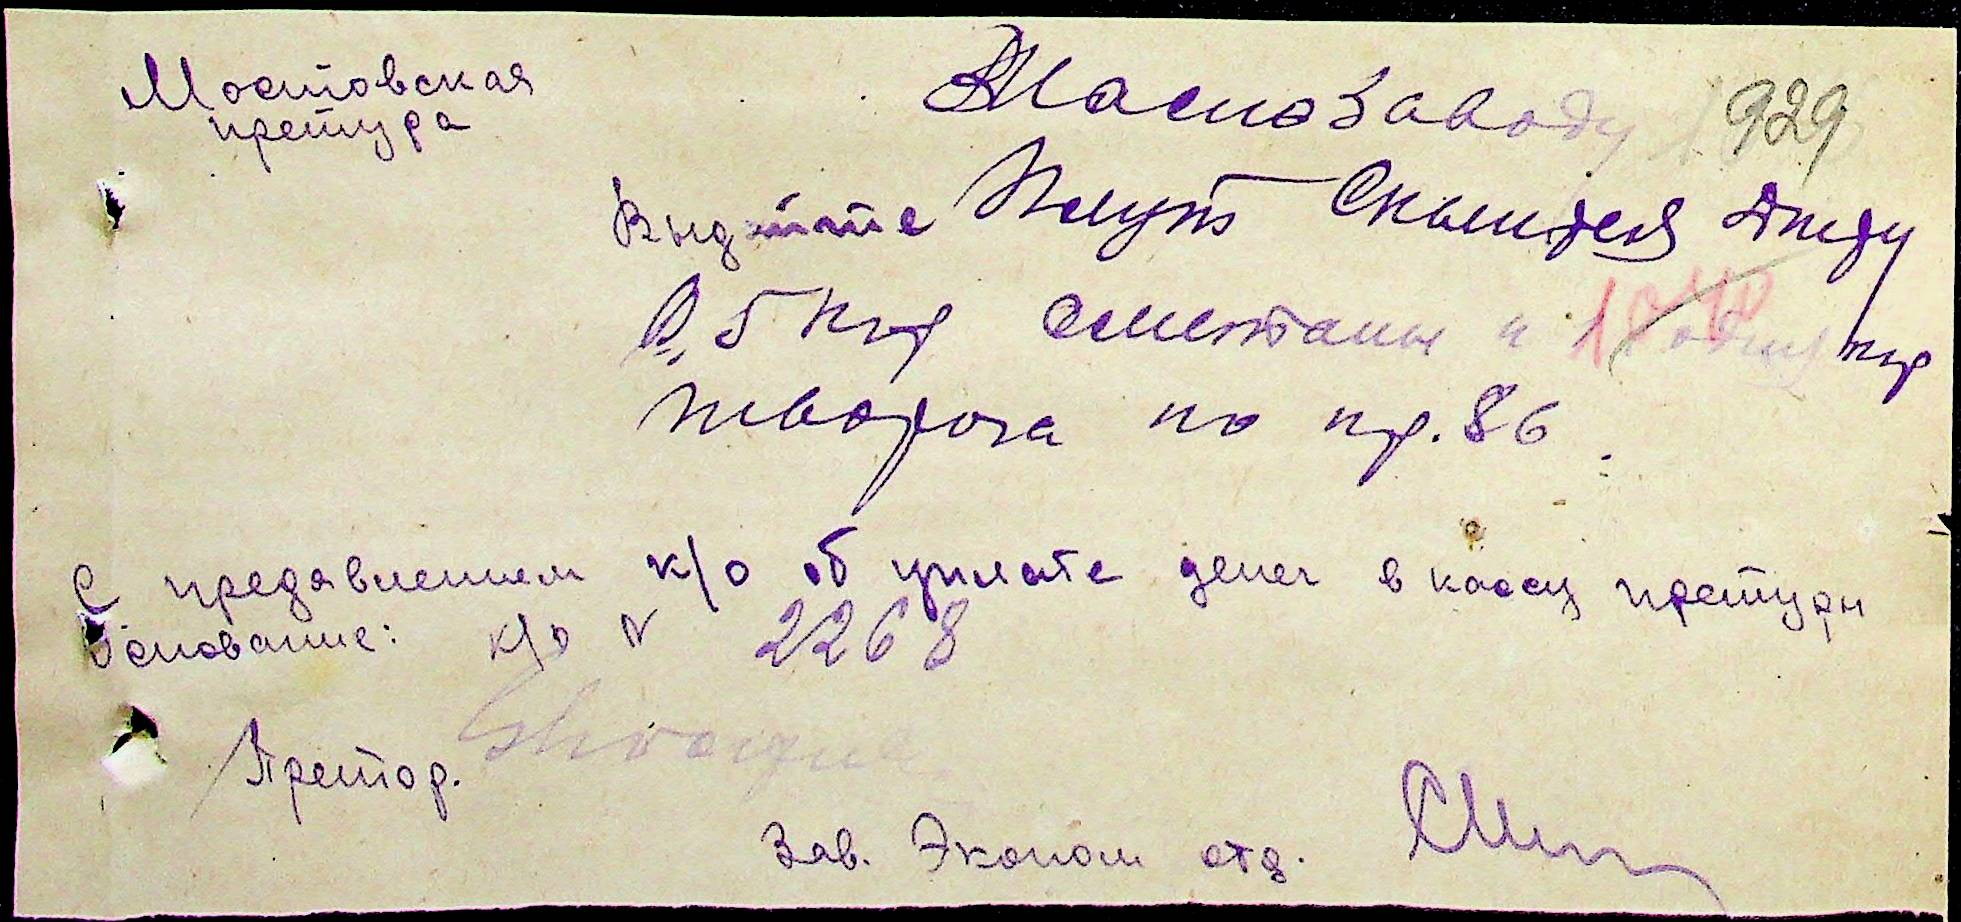 Мостовская
претура
Маслозаводу 929
Выдайте
0,5 кгр сметаны и 1 кгр
творога по пр. 86.
С предявлением к/о об уплате денег в кассу претуры
Основание: к/о N 2268
Претор.
Зав. Эконом отд.